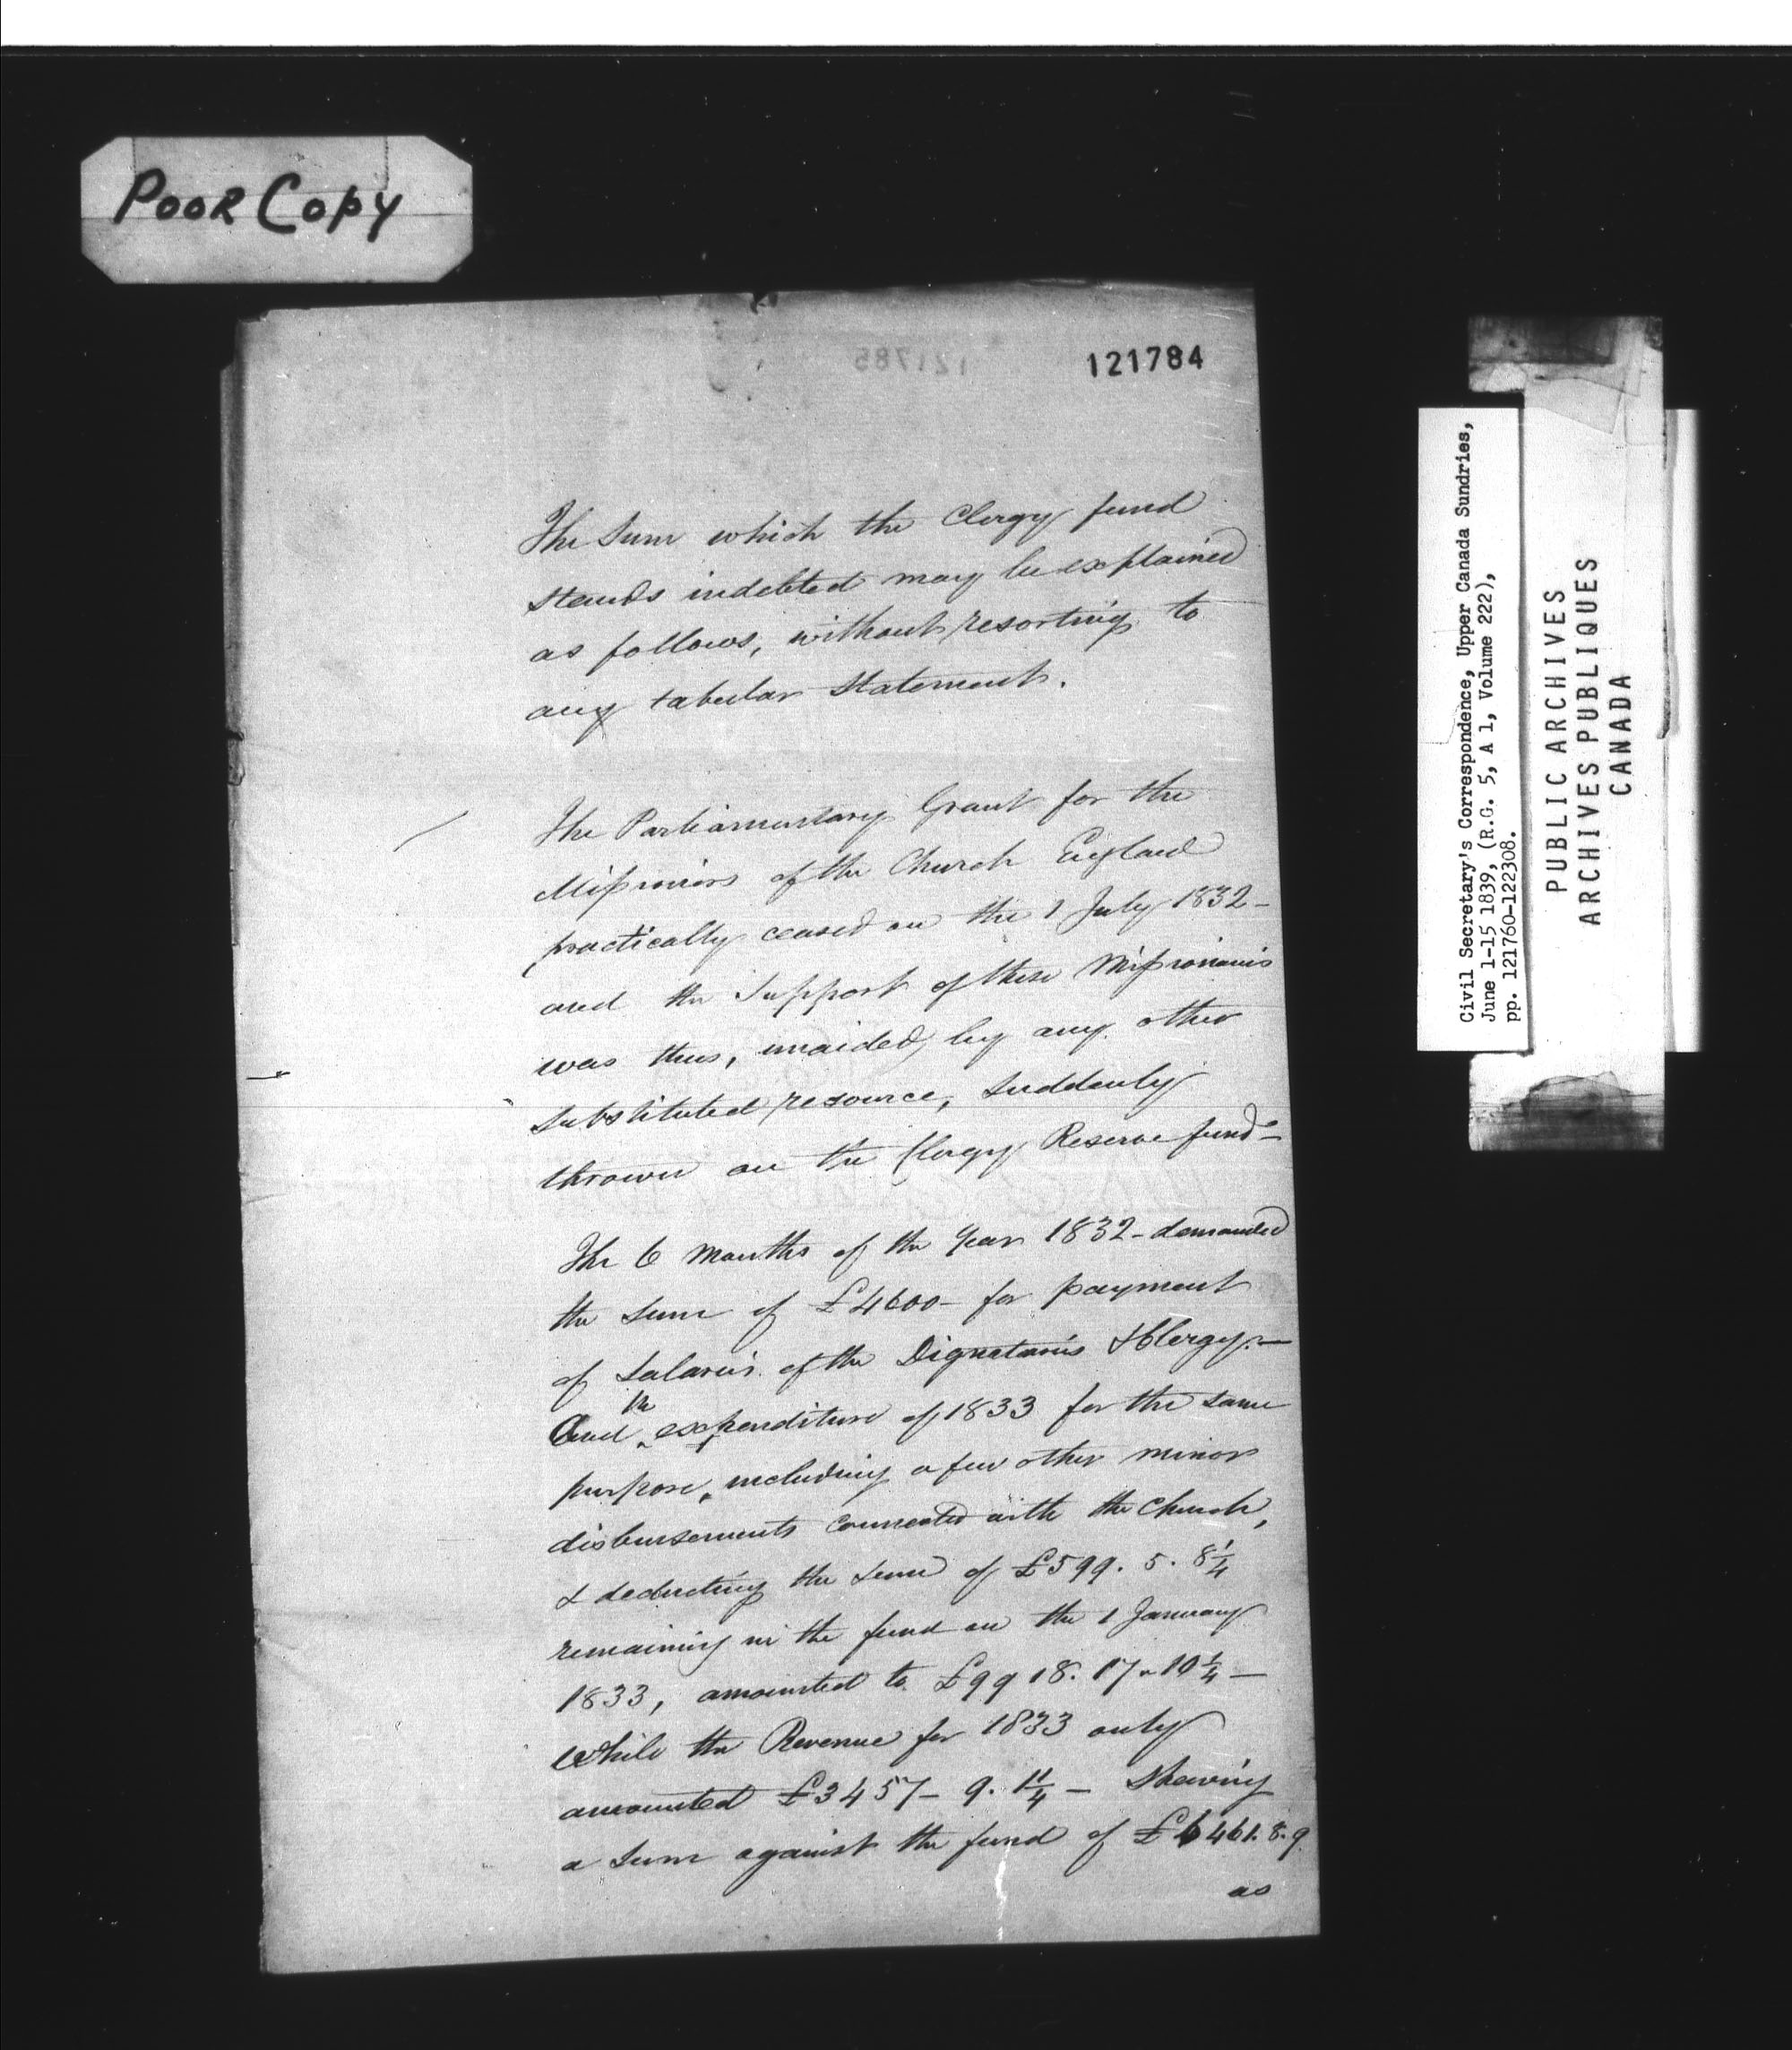 Poor Copy
121785
121784
The Sum which the Clergy fund
stands indebted may be explained
as follows, without resorting to
any tabular statement.
The Parliamentary Grant for the
Missions of the Church England
practically ceased on the 1 July 1832 -
and the support of these Missionaries
was thus, unaided, by any other
substituted resource, suddenly
thrown on the Clergy Reserve fund -
The 6 Months of the Year 1832 - demanded
the sum of £4600 - for payment
of Salaries of the Dignataries & Clergy. -
the
And ‸ expenditure of 1833 for the same
purpose, including a few other minor
disbursements connected with the Church,
& deducting the sum of £599. 5. 8 1/4
remaining in the fund on the 1 January
1833, amounted to £9918. 17. 10 1/4 -
While the Revenue for 1833 only
amounted £3457 - 9. 1 1/4 - Shewing
a sum against the fund of £6461. 8. 9
as
Civil Secretary's Correspondence, Upper Canada Sundries,
June 1-15 1839, (R.G. 5, A 1, Volume 222),
pp. 121760-122308.
PUBLIC ARCHIVES
ARCHIVES PUBLIQUES
CANADA